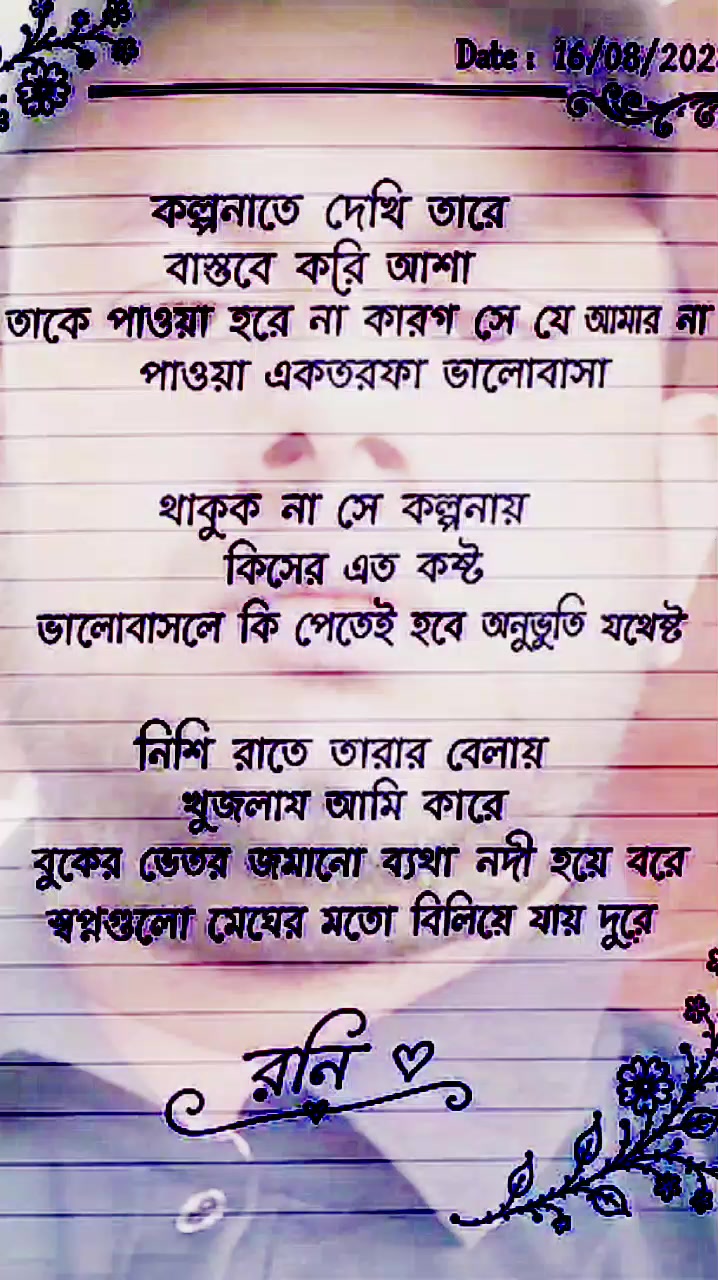 Date : 16/08/202
কল্পনাতে দেখি তারে
বাস্তবে করি আশা
তাকে পাওয়া হরে না কারগ সে যে আমার না
পাওয়া একতরফা ভালোবাসা
থাকুক না সে কল্পনায়
কিসের এত কষ্ট
ভালোবাসলে কি পেতেই হবে অনুভুতি যথেষ্ট
নিশি রাতে তারার বেলায়
খুজলায আমি কারে
বুকের ভেতর জমানো ব্যথা নদী হয়ে বরে
স্বপ্নগুলো মেঘের মতো বিলিয়ে যায় দুরে
রনি